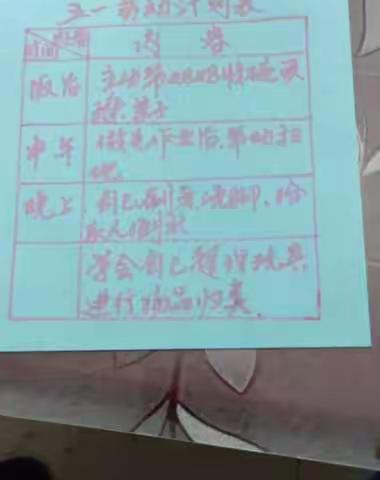 五一劳动计划表
时间 内容
饭后 主动帮妈妈收拾碗
筷、
中午 做完作业后,帮助扫
地
晚上 自己刷牙、洗脚,给
家人倒水
学会自己整理玩具
进行物品归类.